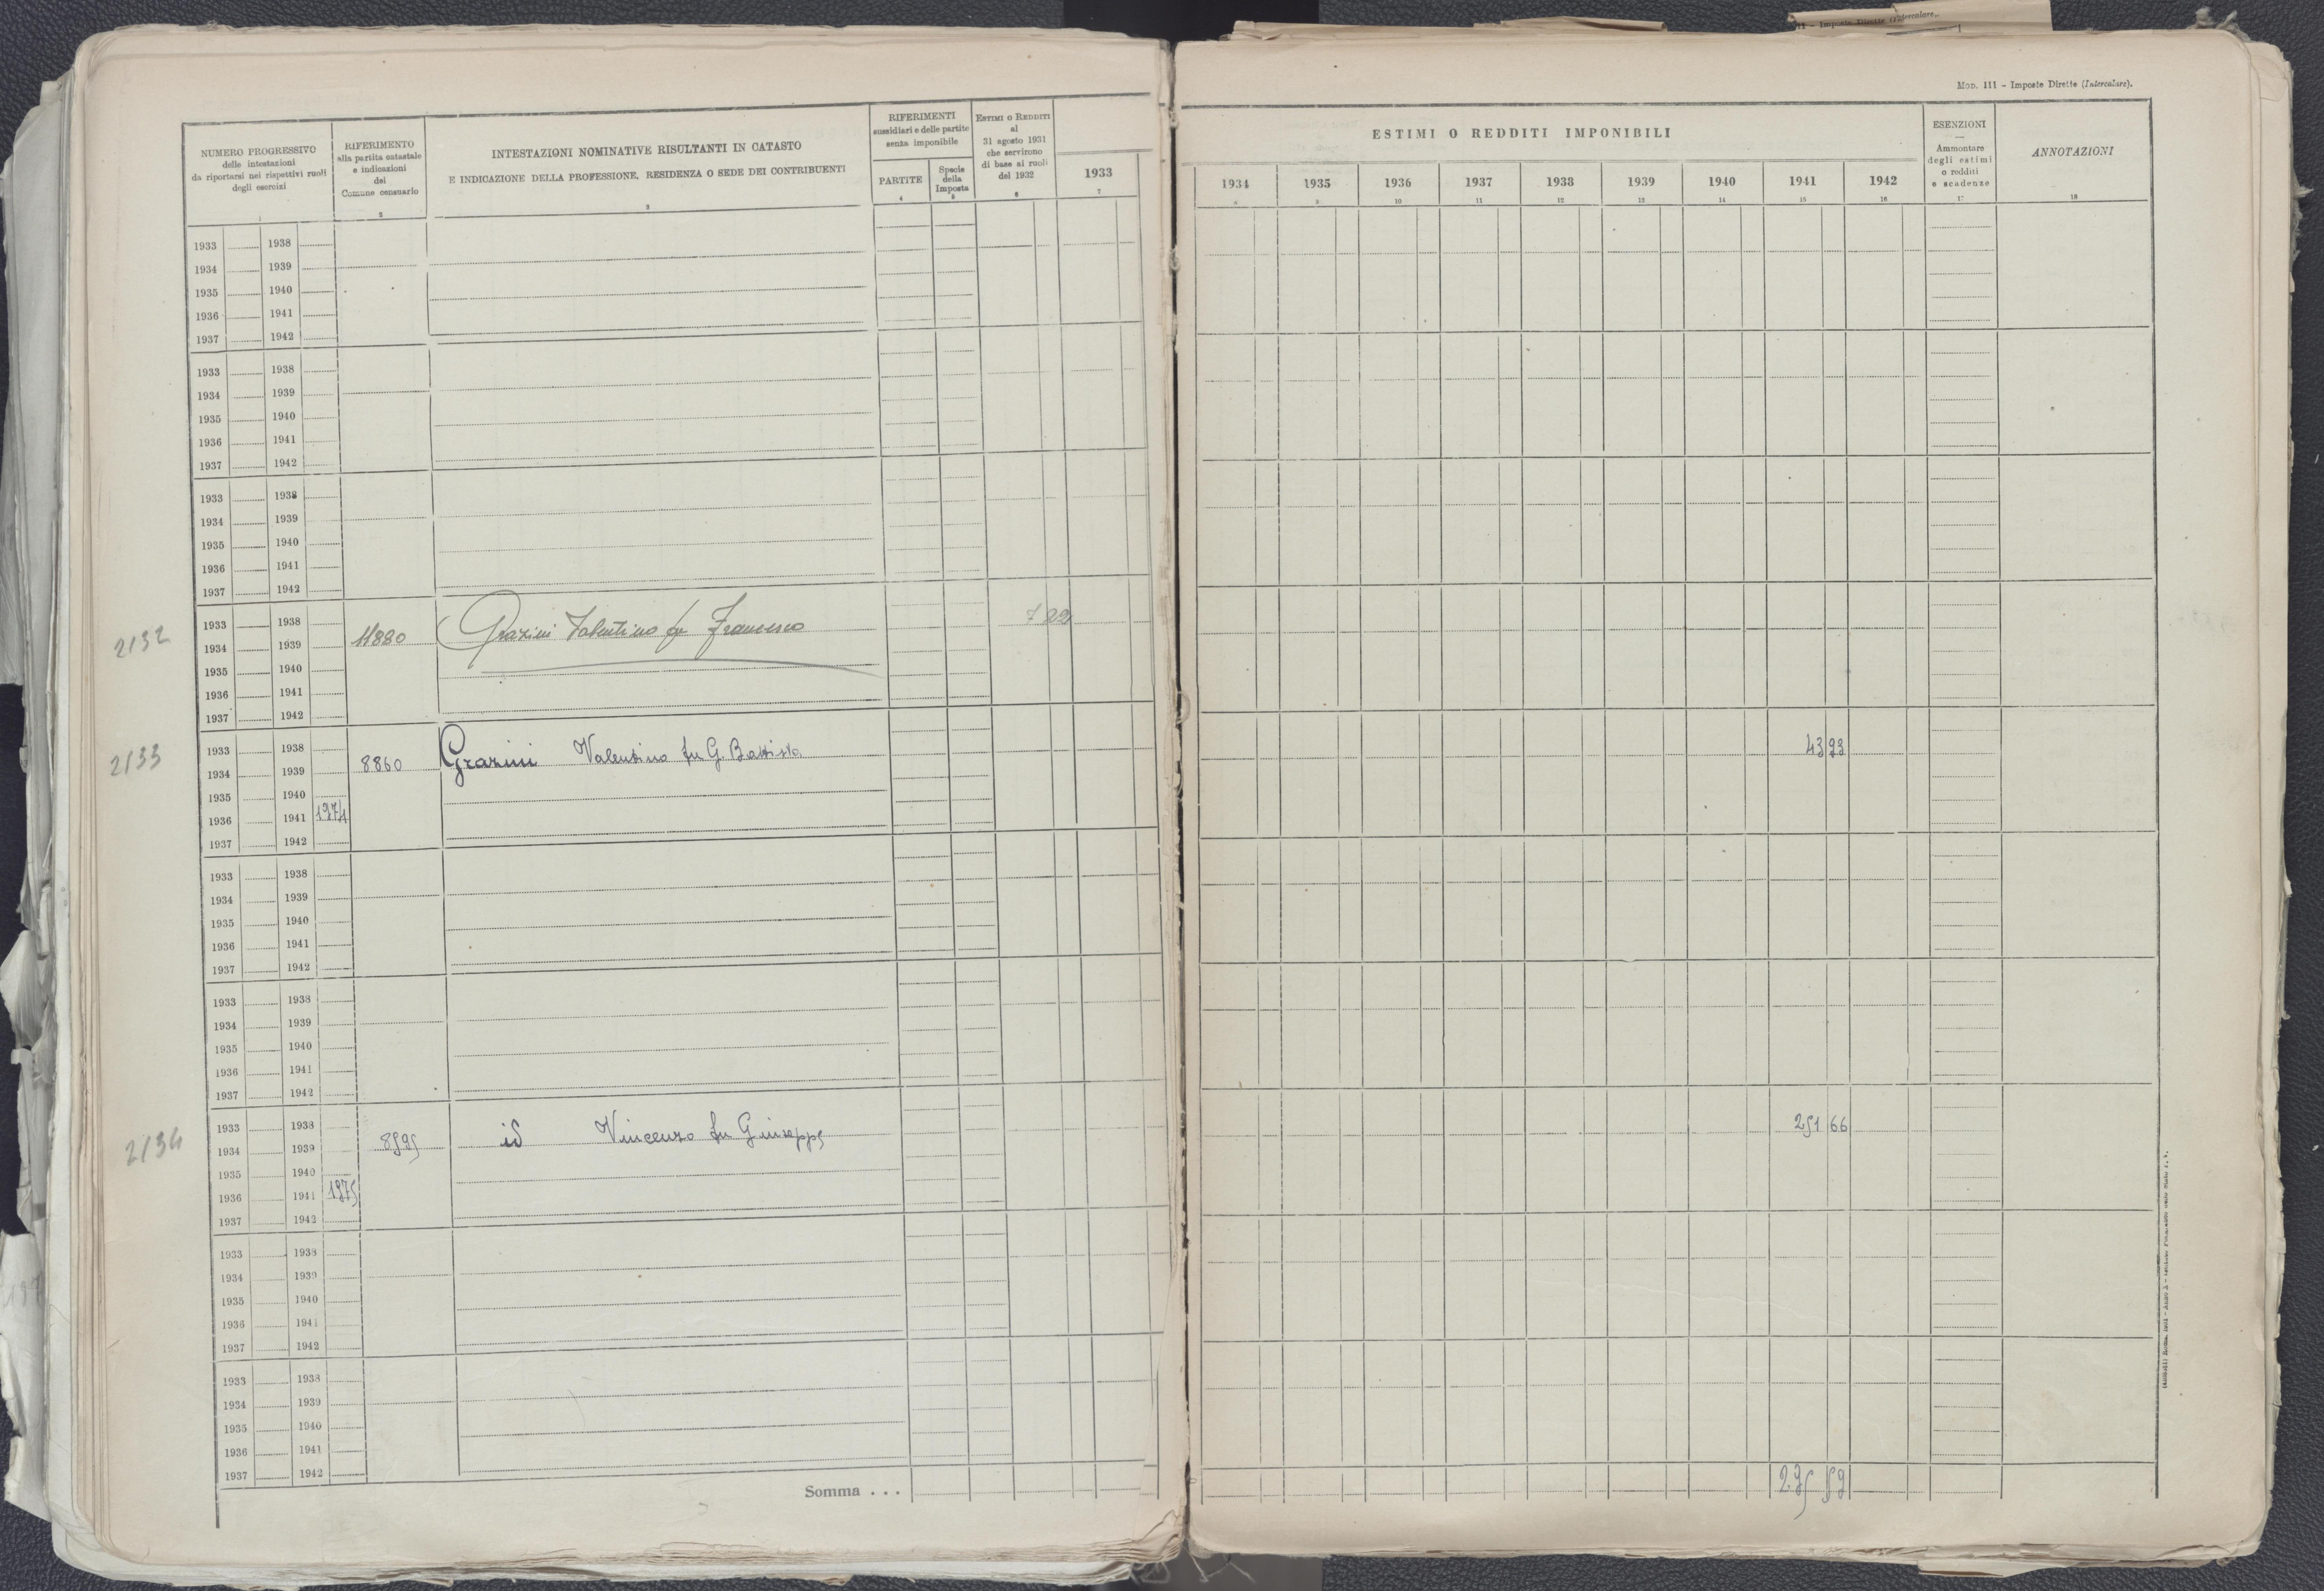 111 – Imposte Dirette (Intercalare)
MOD. 111 – Imposte Dirette (Intercalare).
NUMERO PROGRESSIVO
delle intestazioni
da riportarsi nei rispettivi ruoli
degli esercizi
1
RIFERIMENTO
alla partita catastale
e indicazioni
del
Comune censuario
2
INTESTAZIONI NOMINATIVE RISULTANTI IN CATASTO
E INDICAZIONE DELLA PROFESSIONE, RESIDENZA O SEDE DEI CONTRIBUENTI
3
RIFERIMENTI
sussidiari e delle partite
senza imponibile
PARTITE
4
Specie
della
Imposta
5
ESTIMI O REDDITI
al
31 agosto 1931
che servirono
di base ai ruoli
del 1932
6
1933
7
ESTIMI O REDDITI IMPONIBILI
1934 1935 1936 1937 1938 1939 1940 1941 1942
8 9 10 11 12 13 14 15 16
ESENZIONI
—
Ammontare
degli estimi
o redditi
e scadenze
17
ANNOTAZIONI
18
1933 1938
1934 1939
1935 1940
1936 1941
1937 1942
1933 1938
1934 1939
1935 1940
1936 1941
1937 1942
1933 1938
1934 1939
1935 1940
1936 1941
1937 1942
2132
1933 1938
11880 Grazini Valentino fu Francesco 7 22
1934 1939
1935 1940
1936 1941
1937 1942
2133
1933 1938
8860 Grazini Valentino fu G. Battista 43 93
1934 1939
1935 1940
1936 1941 1974
1937 1942
1933 1938
1934 1939
1935 1940
1936 1941
1937 1942
1933 1938
1934 1939
1935 1940
1936 1941
1937 1942
2134
1933 1938
8595 id Vincenzo fu Giuseppe 251 66
1934 1939
1935 1940
1936 1941 1975
1937 1942
1933 1938
1934 1939
1935 1940
1936 1941
1937 1942
1933 1938
1934 1939
1935 1940
1936 1941
1937 1942
Somma . . . 295 59